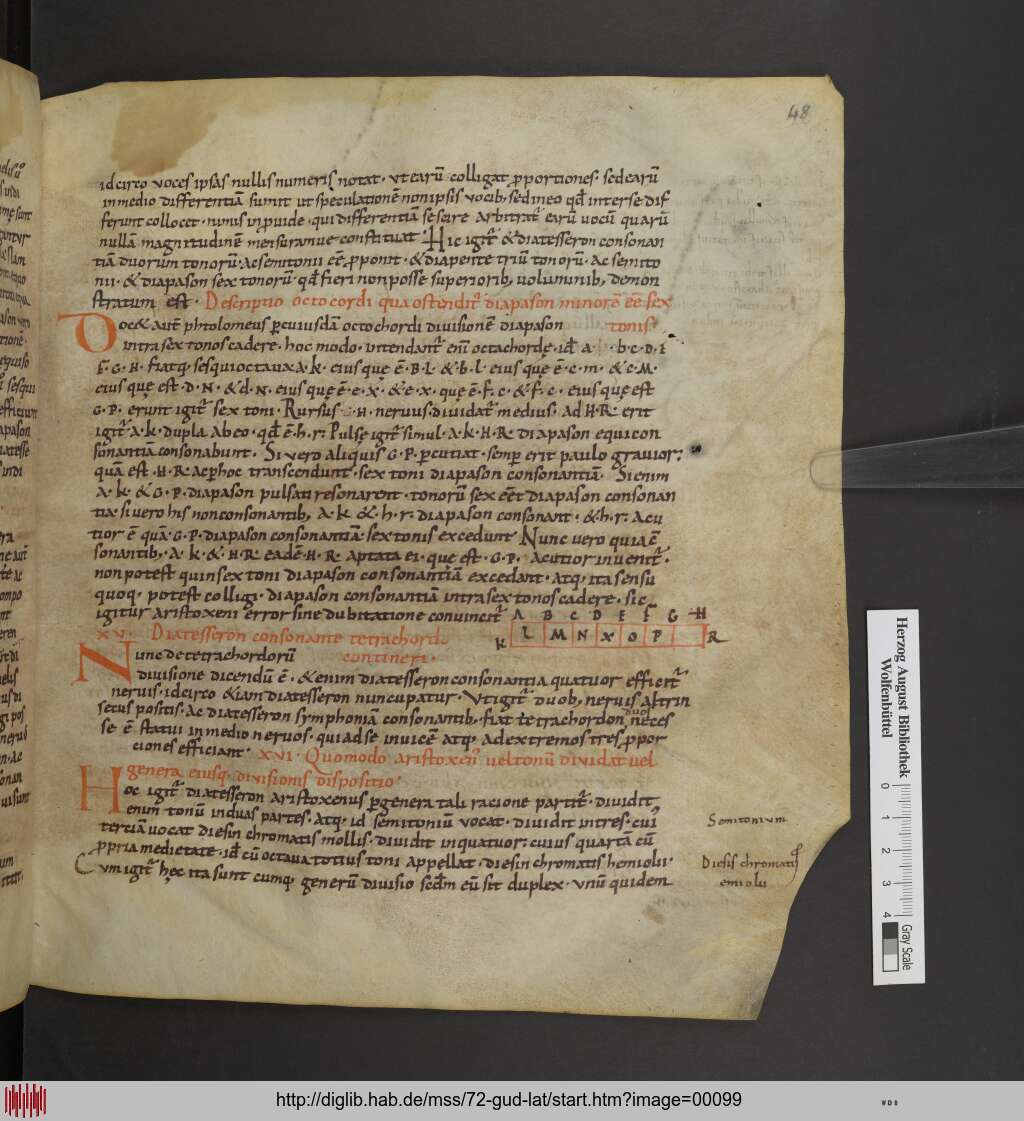 48
idcirco voces ipsas nullis numeris notat · ut earū colligat ꝓportiones · sed earū
in medio differentiā sumit ut speculationē non ipsis vocib; sed in eo qđ inter se dif
ferunt collocet · nimis inprovide · qui differentiā se scire arbitrat̄ earū vocū quarū
nullā magnitudinē mensuramve constituat Hic igit̄ & diatesseron consonan
tiā duorum tonorū · ac semitonii eē ꝓponit · & diapente triū tonorū · ac semito
nii · & diapason sex tonorū · qđ fieri non posse superiorib; voluminib; demon
stratum est · Descriptio octo cordi qua ostendit̄ diapason minorē eē sex
Doc& aut̄ phtolomeus ꝑ cuiusdā octochordi divisionē diapason tonis
intra sex tonos cadere · hoc modo · intendant̄ eni octachordę · id ē a · b · c · D · E
F · G · H · fiatq; sesquioctava · A · k · eiusque ē · B · L · & · b · l · eiusquę ē · c · m · & c · M ·
eius quę est · D · N · & d · N · eiusquę ē · e · x · & e · x · quę ē · f · c · & · f · c · eiusquę est
G · P · erunt igit̄ sex toni · Rursus · H · nervus · dividat̄ medius · ad H · R · erit
igit̄ · A · k · dupla ab eo · qđ ē · h · r · Pulsę igit̄ simul · A · k · H · R · diapason equicon
sonantiā consonabunt · Si vero aliquis G · P · ꝑcutiat · semꝑ erit paulo gravior ·
quā est · H · R · ac ꝑ hoc transcendunt · sex toni diapason consonantiā · Si enim
A · k · & G · P · diapason pulsati resonarent · tonorū sex eēt diapason consonan
tia · si vero his non consonantib; A · k & · h · r · diapason consonant · & h · r · acu
tior ē quā · G · P · diapason consonantiā · sex tonis excedunt Nunc vero quia ē
sonantib; · A · k · & H · R eadē · H · R aptata ei · que est · G · P · acutior invenit̄ ·
non potest quin sex toni diapason consonantiā excedant · atq; ita sensu
quoq; potest colligi · diapason consonantiā intra sex tonos cadere · sic
igitur aristoxeni error sine dubitatione convincit̄ A B C D E F G H
k L M N X O P R
XV · Diatesseron consonantē tetrachordo
contineri ·
Nunc de tetrachordorū
divisione dicendū ē · & enim diatesseron consonantia quatuor efficit̄
nervis · idcirco & iam diatesseron nuncupatur · Ut igit̄ duob; nervis altrin
duos
secus positis · ac diatesseron symphoniā consonantib; fiat tetrachordon neces
se ē statui in medio nervos · qui ad se invicē atq; ad extremos tres ꝓpor
ciones efficiant · XVI · Quomodo aristoxen⁹ vel tonū dividat vel
genera eiusq; divisionis dispositio ·
Hoc igit̄ diatesseron aristoxenus ꝑ genera tali racione partit̄ · dividit
enim tonū in duas partes · atq; id semitoniū vocat · dividit in tres · cui⁹
Semitonium
tertiā vocat diesin chromatis mollis · dividit in quatuor · cuius quartā cū
ꝓpria medietate · id ē cū octava totius toni appellat · diesin chromatis hemiolii ·
Diesis chromatis
emiolii
Cum igit̄ hęc ita sunt cumq; generū divisio scdm eū sit duplex · unū quidem
Herzog August Bibliothek
Wolfenbüttel
0 1 2 3 4
Gray Scale
http://diglib.hab.de/mss/72-gud-lat/start.htm?image=00099